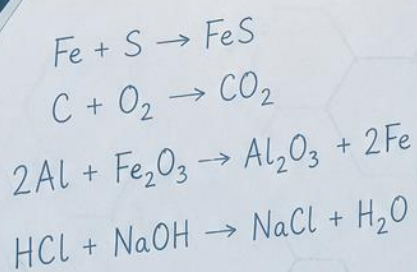 Fe + S → FeS
C + O₂ → CO₂
2Al + Fe₂O₃ → Al₂O₃ + 2Fe
HCl + NaOH → NaCl + H₂O